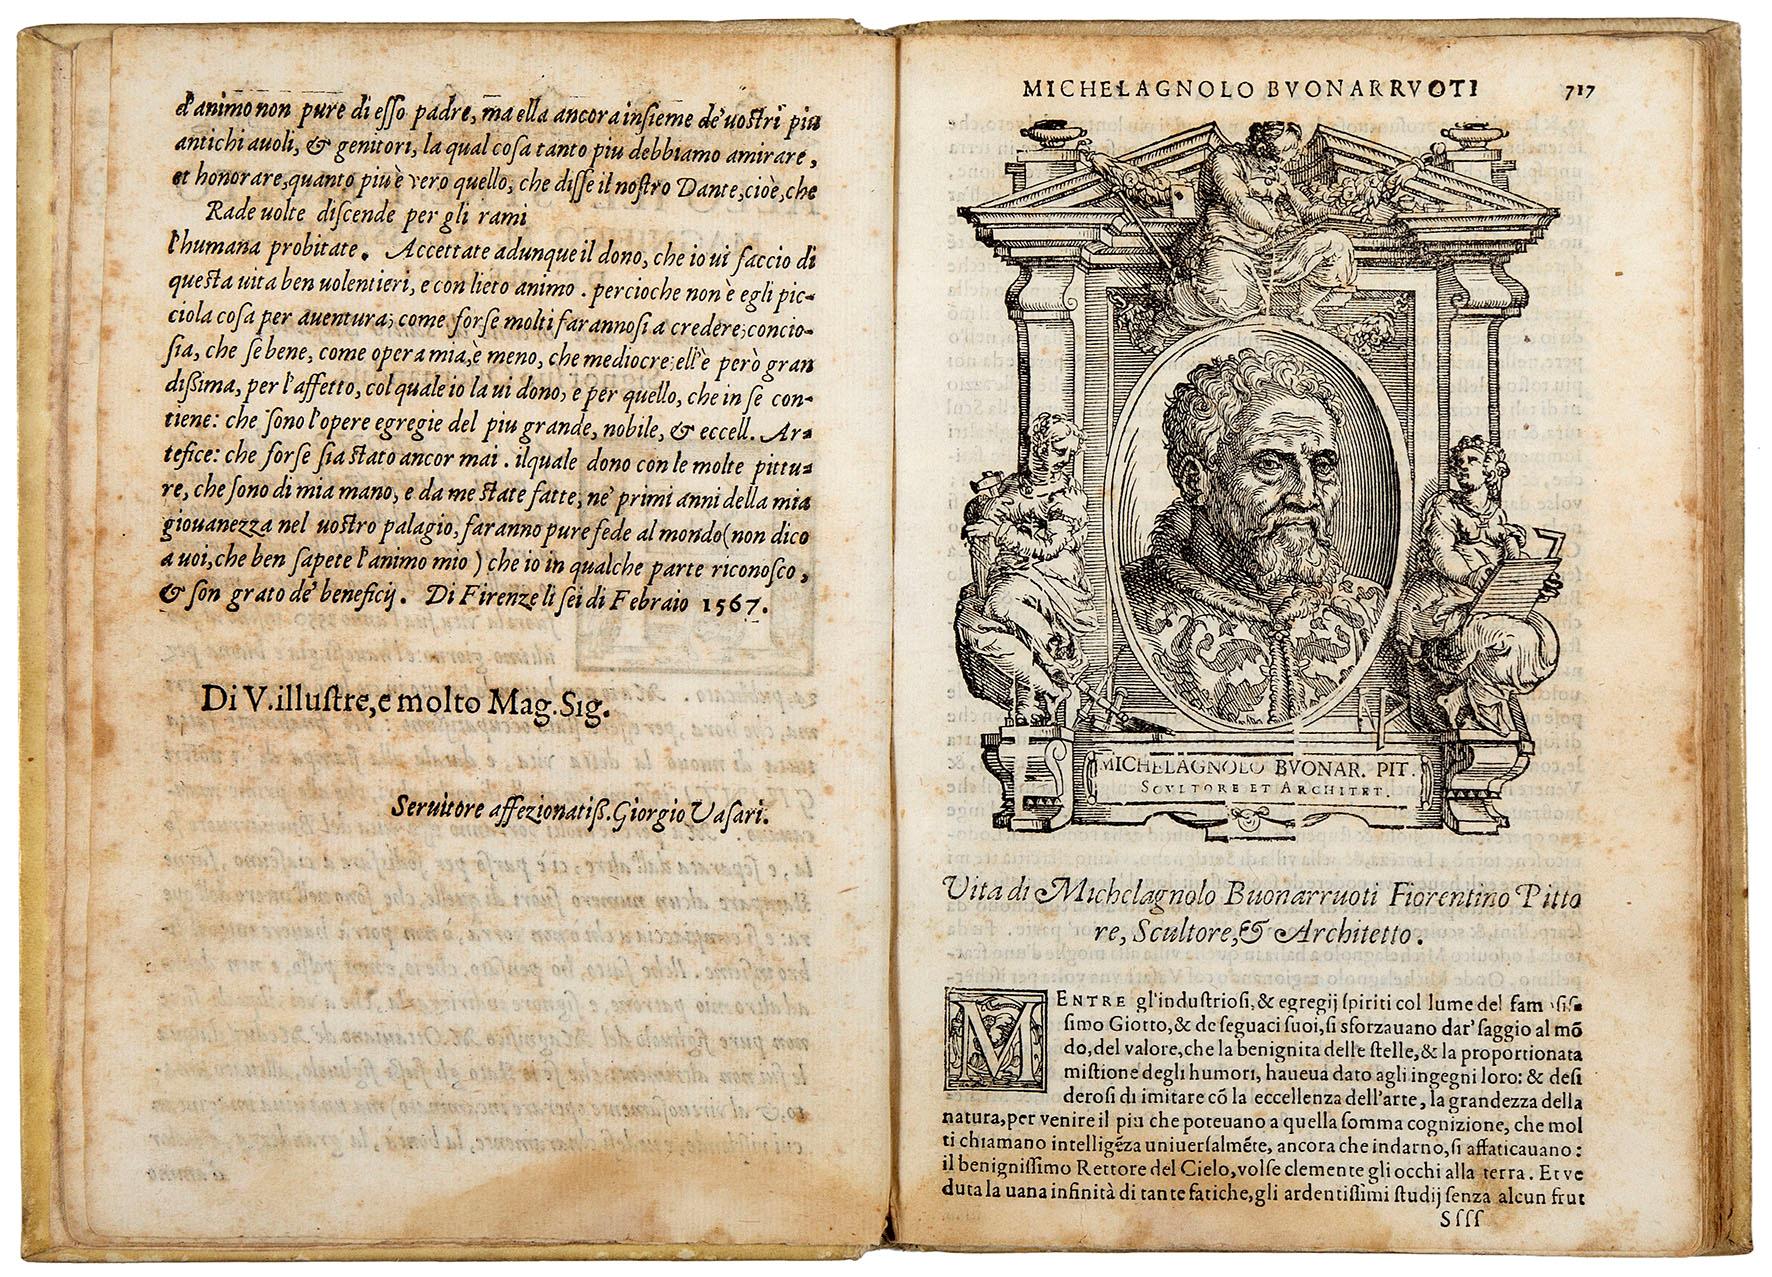 d'animo non pure di esso padre, ma ella ancora insieme de' uostri piu
antichi auoli, & genitori, la qual cosa tanto piu debbiamo amirare,
et honorare, quanto piu è vero quello, che disse il nostro Dante, cioè, che
Rade uolte discende per gli rami
l'humana probitate. Accettate adunque il dono, che io ui faccio di
questa uita ben uolentieri, e con lieto animo. percioche non è egli pic-
ciola cosa per auentura; come forse molti farannosi a credere; concio-
sia, che se bene, come opera mia, è meno, che mediocre; ell'è però gran
dissima, per l'affetto, col quale io la ui dono, e per quello, che in se con-
tiene: che sono l'opere egregie del piu grande, nobile, & eccell. Ar-
tefice: che forse sia stato ancor mai. ilquale dono con le molte pittu-
re, che sono di mia mano, e da me state fatte, ne' primi anni della mia
giouanezza nel uostro palagio, faranno pure fede al mondo (non dico
a uoi, che ben sapete l'animo mio) che io in qualche parte riconosco,
& son grato de' beneficij. Di Firenze li sei di Febraio 1567.
Di V. illustre, e molto Mag. Sig.
Seruitore affezionatiss. Giorgio Vasari.
MICHELAGNOLO BVONARRVOTI 717
MICHELAGNOLO BVONAR. PIT.
SCVLTORE ET ARCHITET.
Vita di Michelagnolo Buonarruoti Fiorentino Pitto
re, Scultore, & Architetto.
MENTRE gl'industriosi, & egregij spiriti col lume del famosis-
simo Giotto, & de seguaci suoi, si sforzauano dar' saggio al mō
do, del valore, che la benignita delle stelle, & la proportionata
mistione degli humori, haueua dato agli ingegni loro: & desi
derosi di imitare cō la eccellenza dell'arte, la grandezza della
natura, per venire il piu che poteuano a quella somma cognizione, che mol
ti chiamano intelligēza uniuersalmēte, ancora che indarno, si affaticauano:
il benignissimo Rettore del Cielo, volse clemente gli occhi alla terra. Et ve
duta la uana infinità di tante fatiche, gli ardentissimi studij senza alcun frut
Ssss